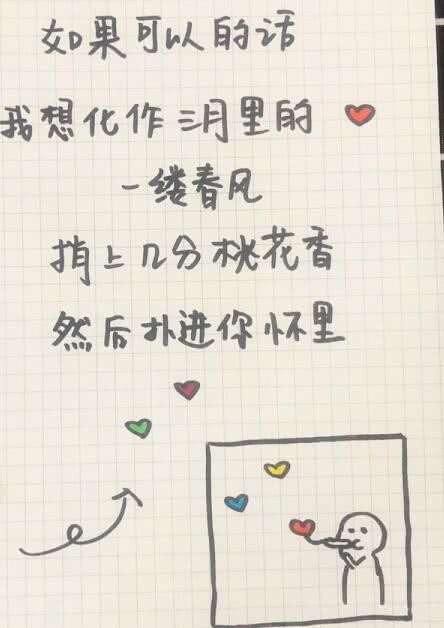 如果可以的话
我想化作三月里的
一缕春风
捎上几分桃花香
然后扑进你怀里